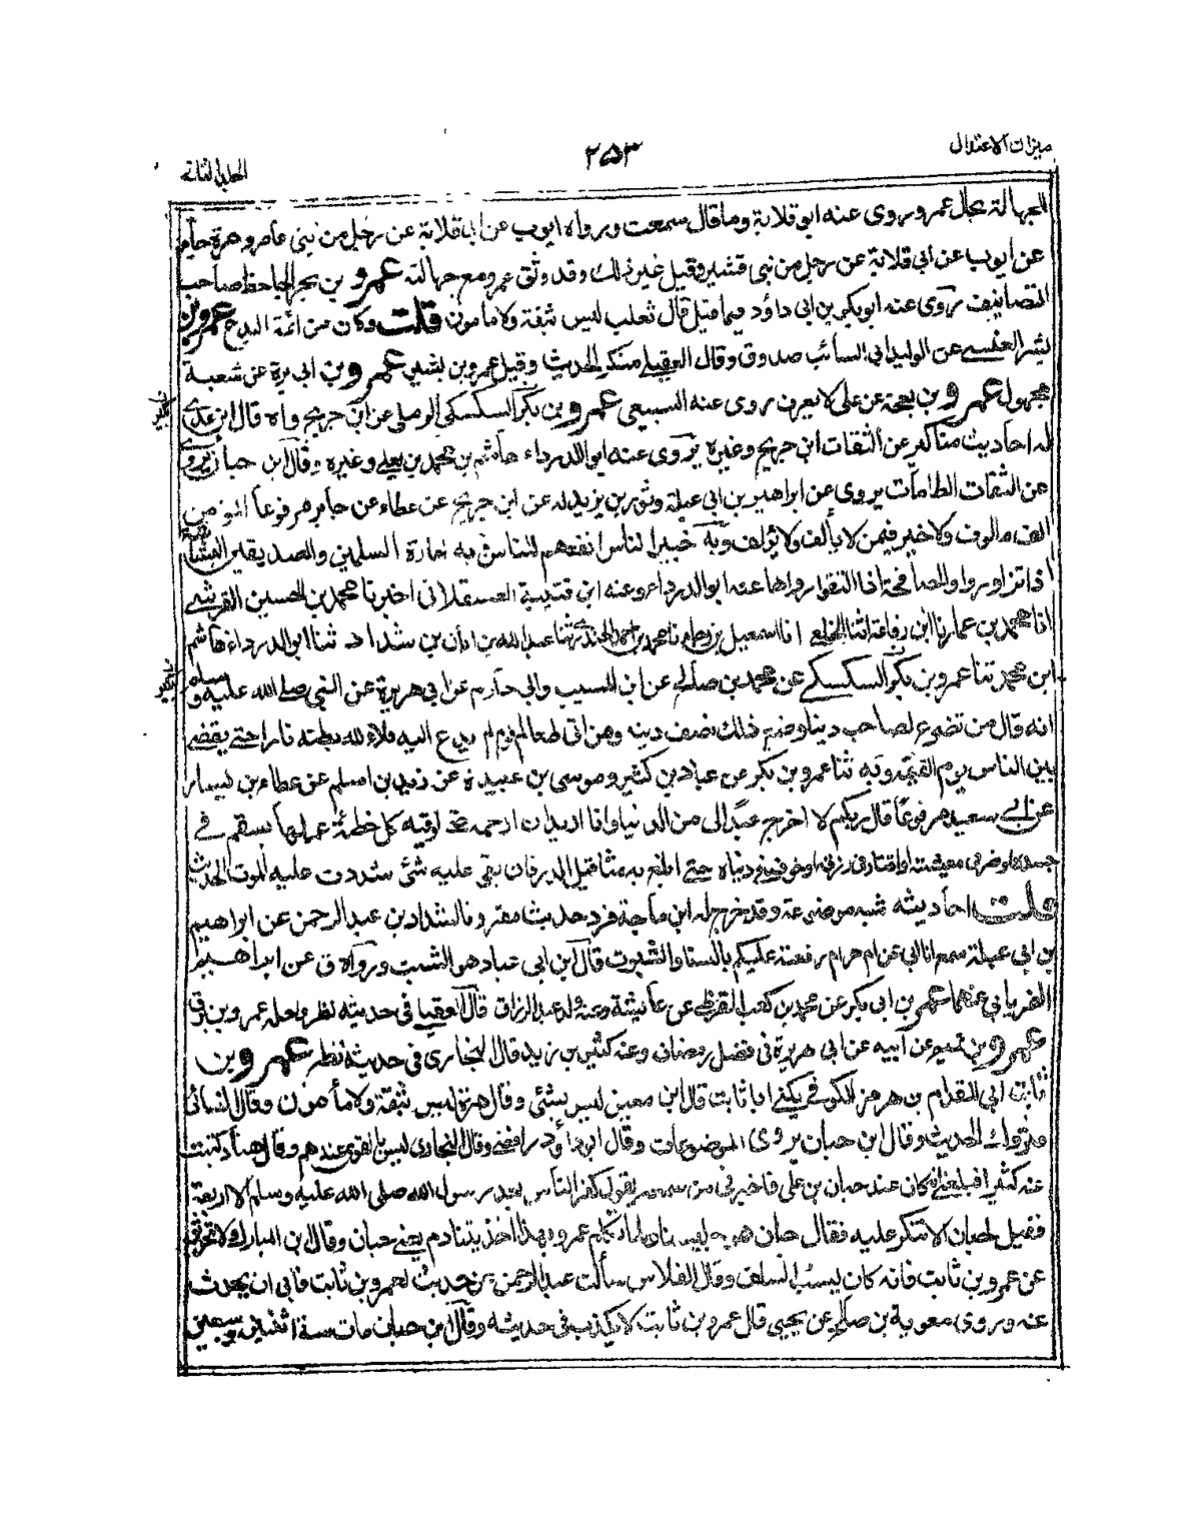 ميزان الاعتدال
٢٥٣
المجلد الثاني
الجهالة بحال عمرو روى عنه ابو قلابة وما قال سمعت ورواه ايوب عن ابى قلابة عن رجل من بنى عامر ومرة جاء
عن ايوب عن ابى قلابة عن رجل من بنى قشير وقيل غير ذلك وقد وثق عمرو مع جهالته عمرو بن بحر الجاحظ صاحب
التصانيف روى عنه ابو بكر بن ابى داؤد فيما قيل قال ثعلب ليس بثقة ولا مامون قلت وكان من ائمة البدع عمرو بن
بشر العنسى عن الوليد ابى السائب صدوق وقال العقيلى منكر الحديث وقيل عمرو بن بشير عمرو بن ابى برة عن شعبة
مجهول عمرو بن بعجة عن على لا يعرف روى عنه السبيعى عمرو بن بكر السكسكى الرملى عن ابن جريج واه قال ابن عدى
له احاديث مناكير عن الثقات ابن جريج وغيره روى عنه ابو الدرداء هاشم بن محمد بن يعلى وغيره وقال ابن حبان يروى
عن الثقات الطامات يروى عن ابراهيم بن ابى عبلة وثور بن يزيد له عن ابن جريج عن عطاء عن جابر مرفوعا المؤمن
الف مالوف ولا خير فيمن لا يألف ولا يؤلف وبه خير الناس انفعهم للناس وبه
اذا تزاوروا والمصافحة اذا التقوا رواها عنه ابو الدرداء وعنه ابن قتيبة العسقلانى اخبرنا محمد بن الحسين القرشى
انا محمد بن عمار انا ابن رفاعة انا الخلعى انا اسمعيل بن نا محمد بن احمد الجندى ثنا عبد الله بن ابان بن شداد ثنا ابو الدرداء هاشم
ابن محمد ثنا عمرو بن بكر السكسكى عن محمد بن صالح عن ابن المسيب وابى حازم عن ابى هريرة عن النبى صلى الله عليه وسلم
انه قال من تضوع لصاحب دينا وضع ذلك نصف دينه ومن اتى طعام قوم لم يدع اليه ملاء الله بطنه نارا حتى يقضى
بين الناس يوم القيمة وبه ثنا عمرو بن بكر عن عباد بن كثير وموسى بن عبيدة عن زيد بن اسلم عن عطاء بن يسار
عن ابى سعيد مرفوعا قال ربكم لا اخرج عبدا لى من الدنيا وانا اريد ان ارحمه حتى اوفيه كل خطيئة عملها بسقم فى
جسده او ضر فى معيشته او اقتار فى رزقه او خوف فى دنياه حتى ابلغ به مثاقيل الذر فان بقى عليه شئ شددت عليه الموت الحديث
قلت احاديثه شبه موضوعة وقد خرج له ابن ماجة فرد حديث مقرونا لشداد بن عبد الرحمن عن ابراهيم
بن ابى عبلة سمعا ابا ابى بن ام حرام رفعته عليكم بالسنا والشبوت قال ابن ابى عباد هو الشبت ورواه ق عن ابراهيم
الفريابى عنهما عمرو بن ابى بكر عن محمد بن كعب القرظى عن عائشة وعنه ولد عبد الرزاق قال العقيلى فى حديثه نظر ولعله عمرو بن برق
عمرو بن تميم عن ابيه عن ابى هريرة فى فضل رمضان وعنه كثير بن زيد قال البخارى فى حديثه نظر عمرو بن
ثابت ابى المقدام بن هرمز الكوفى يكنى ابا ثابت قال ابن معين ليس بشئ وقال مرة ليس بثقة ولا مأمون وقال النسائى
متروك الحديث وقال ابن حبان يروى الموضوعات وقال ابو داؤد رافضى وقال البخارى ليس بالقوى عندهم وقال هناد كتبت
عنه كثيرا فبلغنى انه كان عند حبان بن على فاخبرنى من سمعه يقول كفر الناس بعد رسول الله صلى الله عليه وسلم الا اربعة
فقيل لحبان الا تنكر عليه فقال حبان هو جليسنا ولما تكلم عمرو بهذا اخذ يتنادم يعنى حبان وقال ابن المبارك لا تحدثوا
عن عمرو بن ثابت فانه كان يسب السلف وقال الفلاس سألت عبد الرحمن عن حديث لعمرو بن ثابت فابى ان يحدث
عنه وروى معوية بن صالح عن يحيى قال عمرو بن ثابت لا يكذب فى حديثه وقال ابن حبان مات سنة اثنتين وسبعين